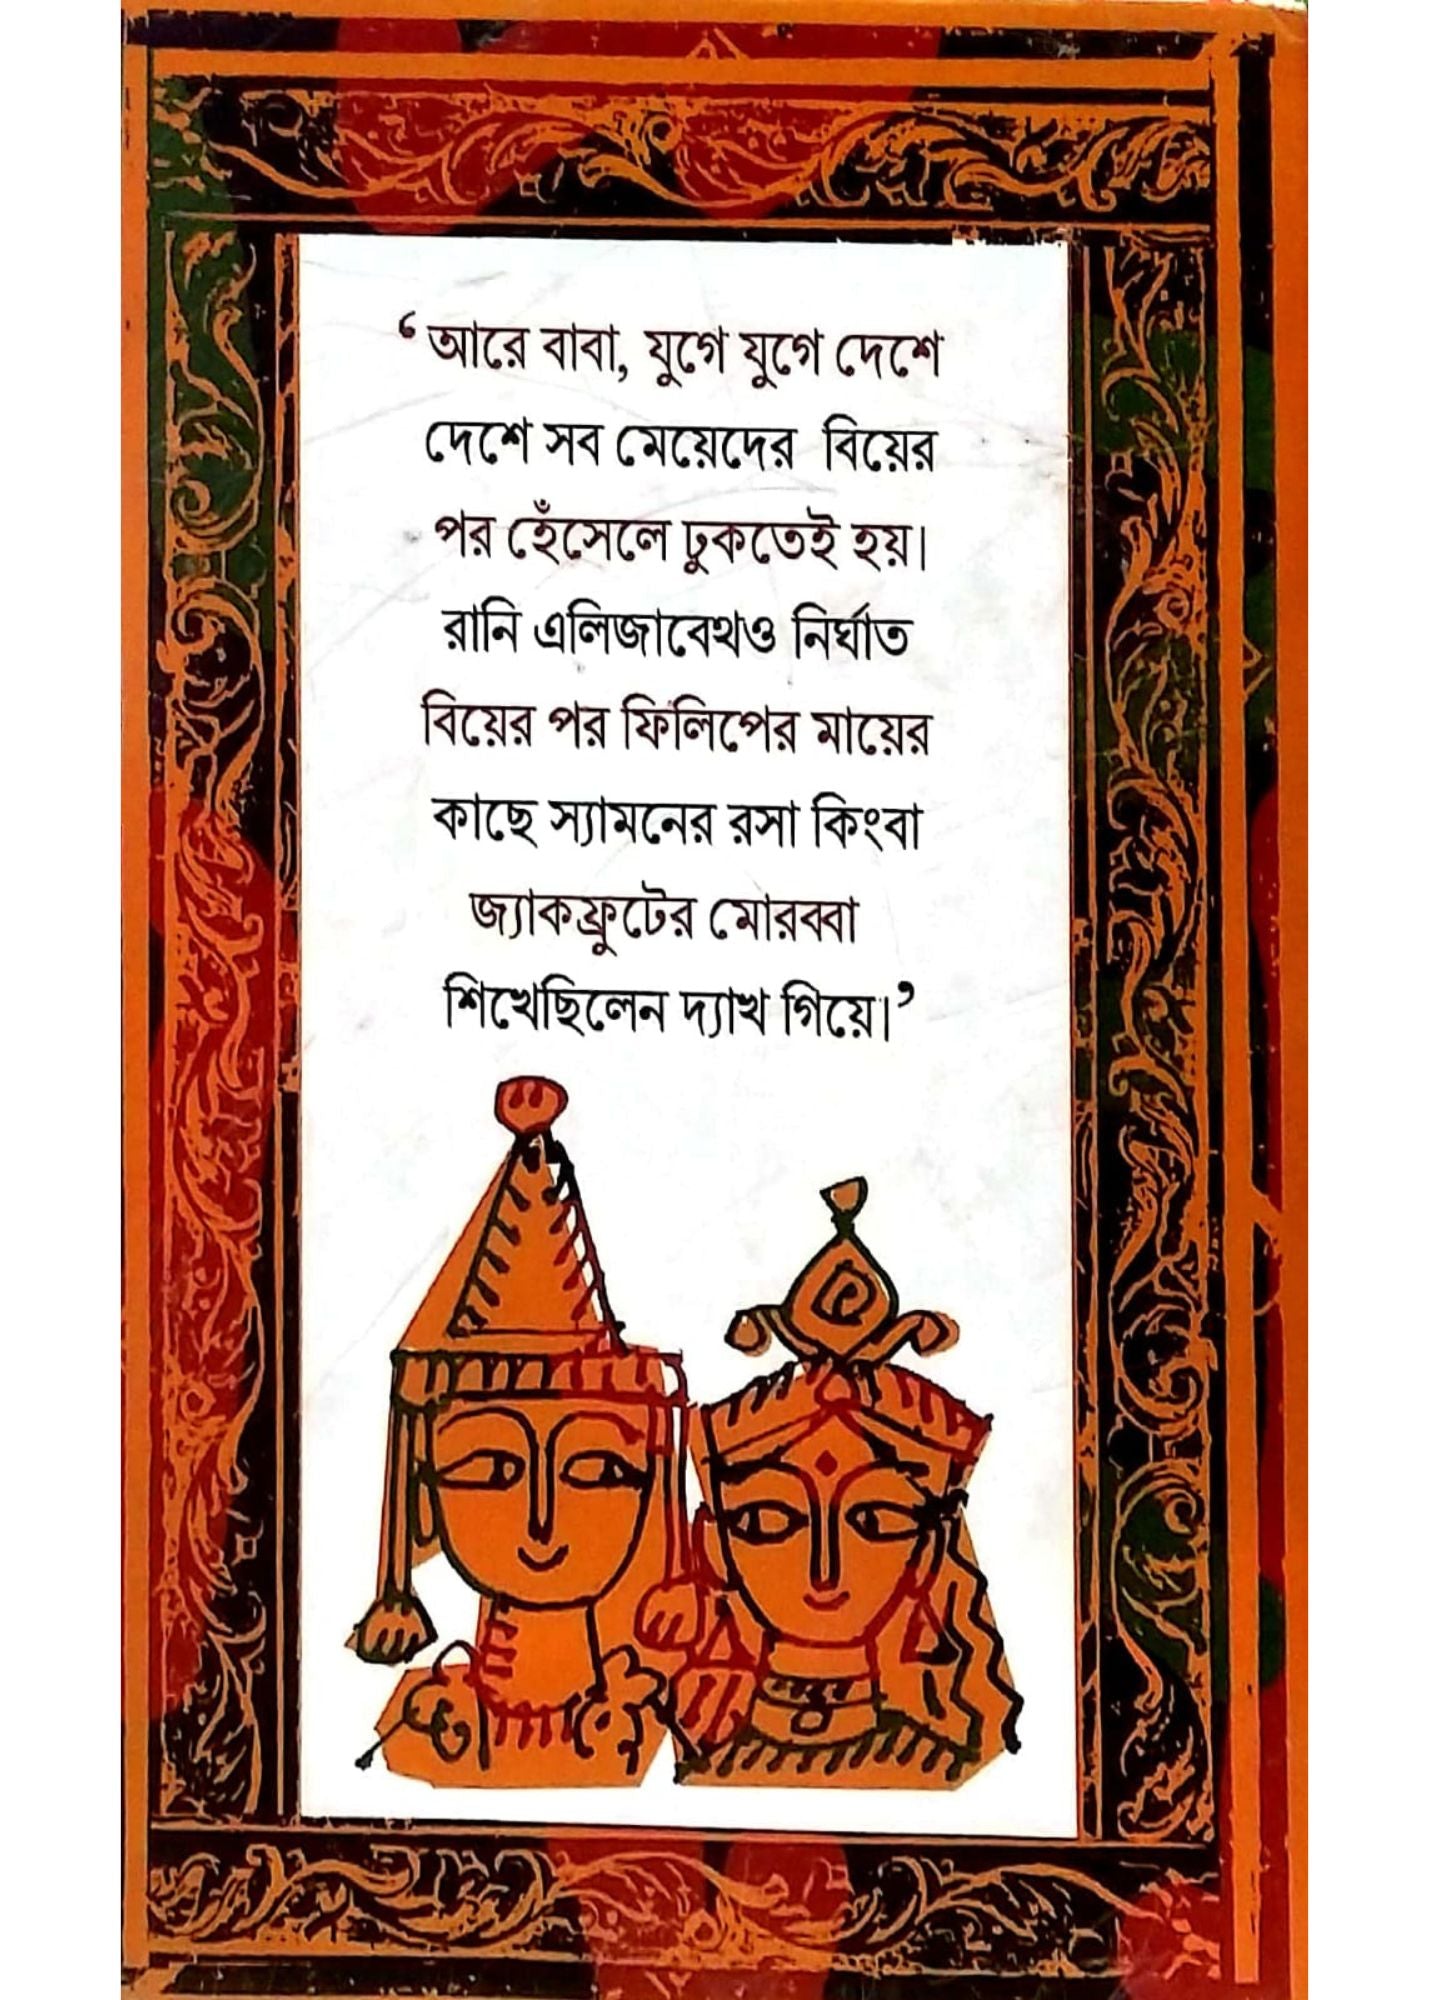 ‘আরে বাবা, যুগে যুগে দেশে
দেশে সব মেয়েদের বিয়ের
পর হেঁসেলে ঢুকতেই হয়।
রানি এলিজাবেথও নির্ঘাত
বিয়ের পর ফিলিপের মায়ের
কাছে স্যামনের রসা কিংবা
জ্যাকফ্রুটের মোরব্বা
শিখেছিলেন দ্যাখ গিয়ে।’